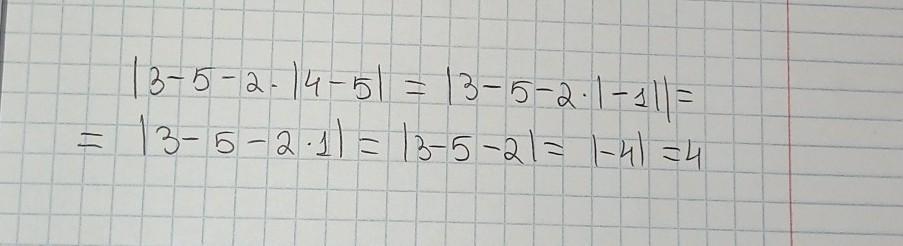 |3-5-2·|4-5| = |3-5-2·|-1||=
= |3-5-2·1| = |3-5-2| = |-4| = 4